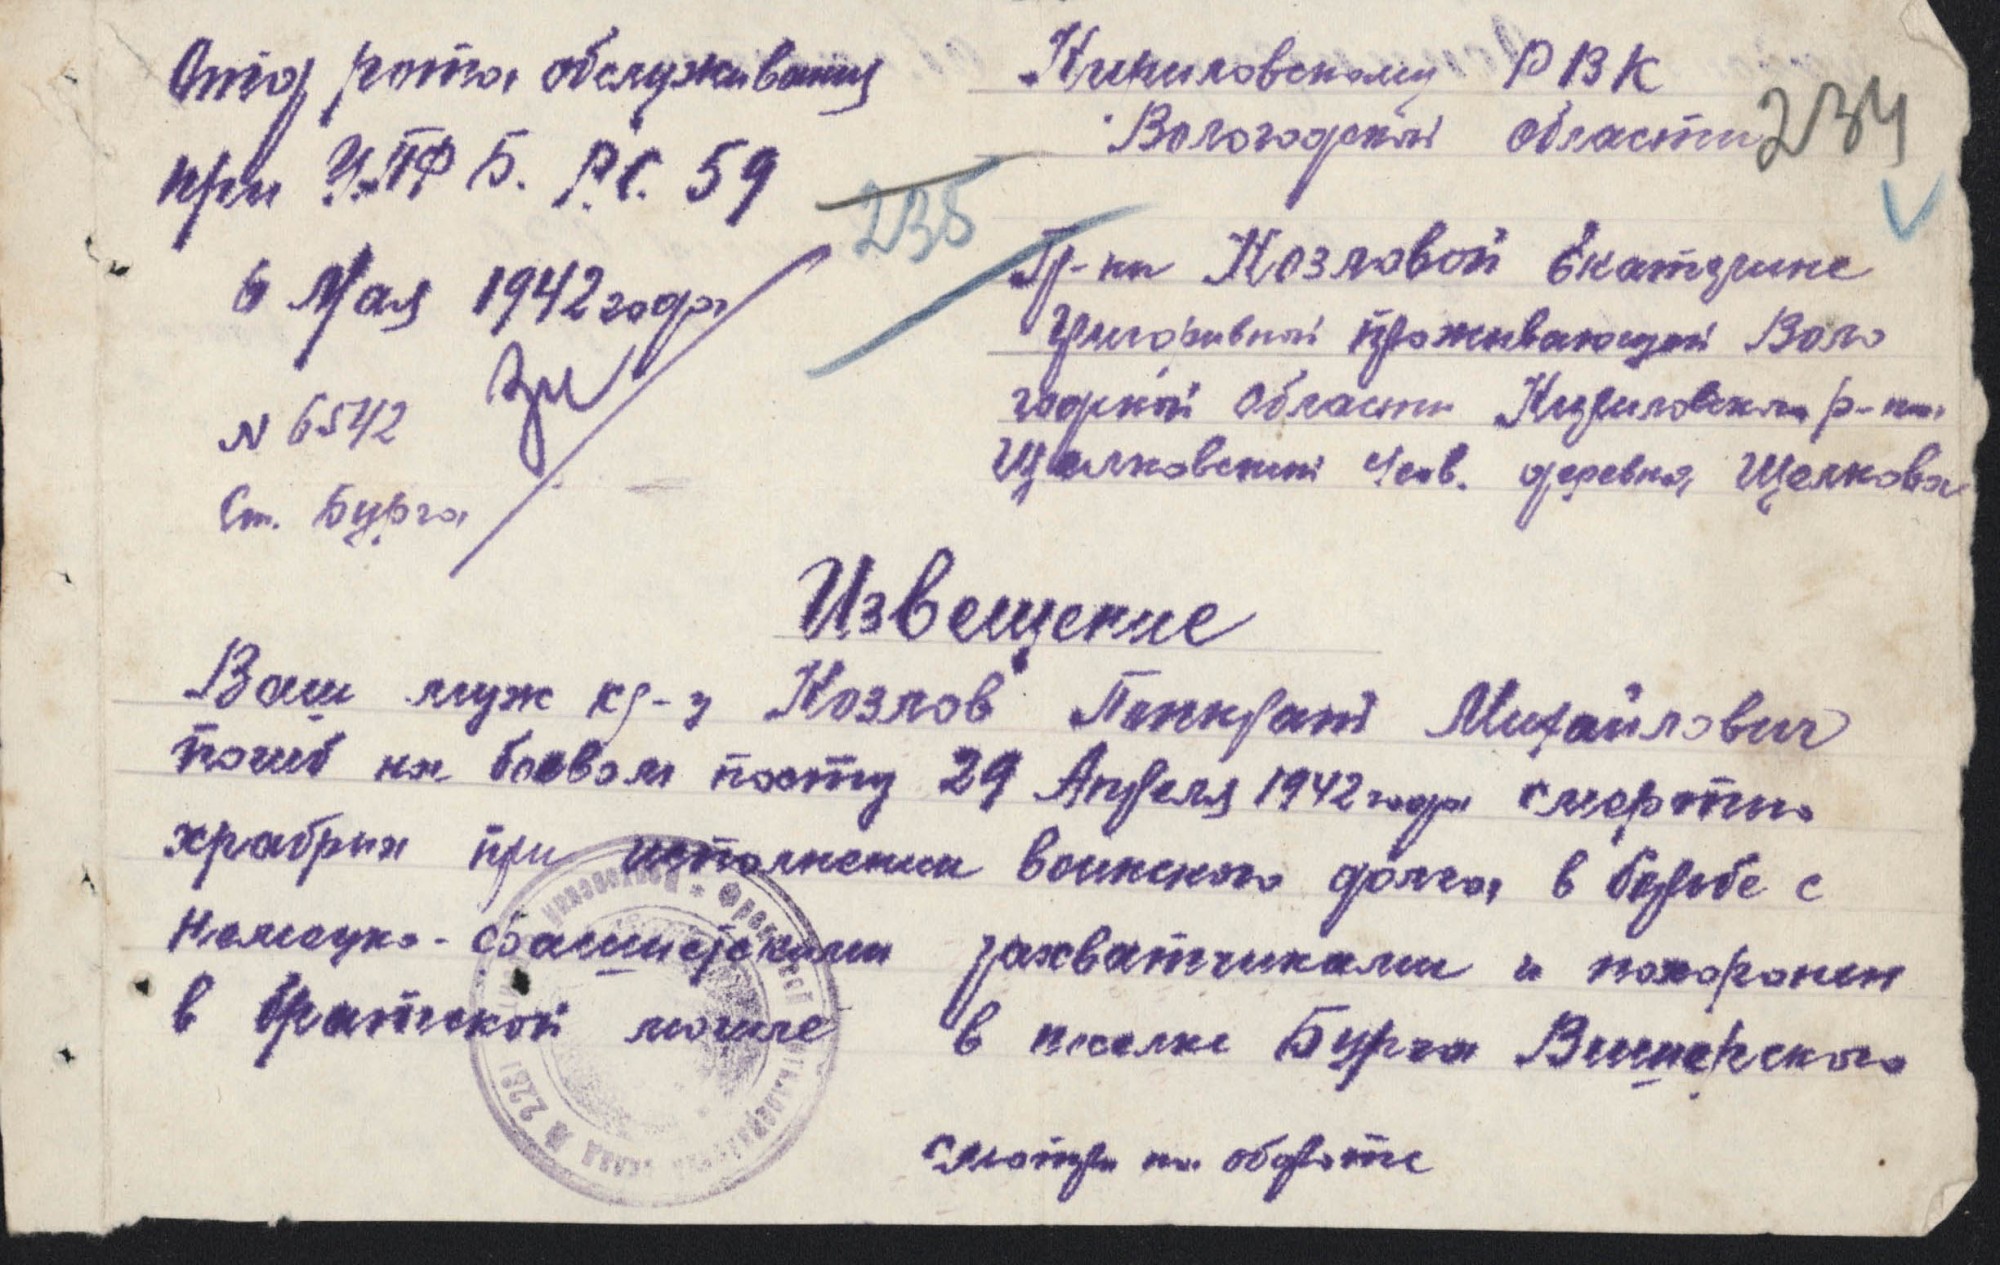 Отд рота обслуживания
при У.ПФ Б. Р.С. 59
6 Мая 1942 года
N 6542
Ст. Бурга
235
Кириловскому РВК
Вологодской области
234
Гр-ки Козловой Екатерине
Григоривной проживающей Воло
годской области Кириловского р-на
Щелковский с/сов. деревня Щелкова
Извещение
Ваш муж кр-ц Козлов Панкрат Михайлович
погиб на боевом посту 29 Апреля 1942 года смертью
храбрых при исполнении воинского долга в борьбе с
немецко-фашистскими захватчиками и похоронен
в братской могиле в поселке Бурга Вишерского
смотри на обороте